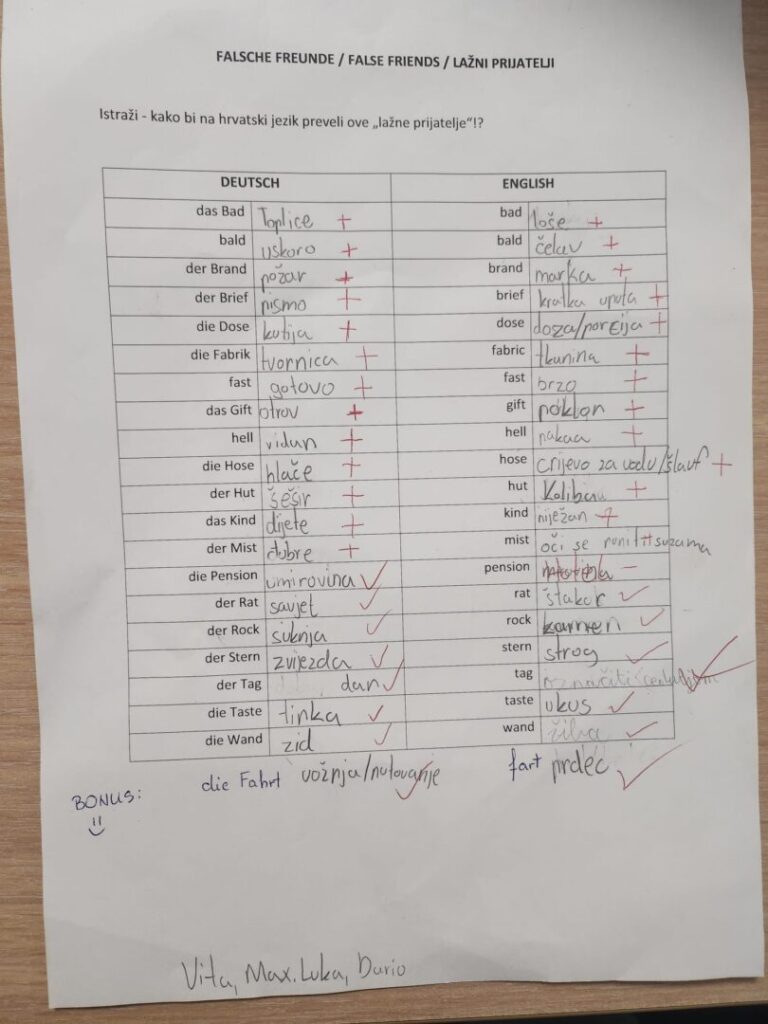 FALSCHE FREUNDE / FALSE FRIENDS / LAŽNI PRIJATELJI
Istraži - kako bi na hrvatski jezik preveli ove „lažne prijatelje“!?
DEUTSCH ENGLISH
das Bad Toplice + bad loše +
bald uskoro + bald čelav +
der Brand požar + brand marka +
der Brief pismo + brief kratka uputa +
die Dose kutija + dose doza/porcija +
die Fabrik tvornica + fabric tkunina +
fast gotovo + fast brzo +
das Gift otrov + gift poklon +
hell vidun + hell pakao +
die Hose hlače + hose crijevo za vodu/šlauf +
der Hut šešir + hut Koliba +
das Kind dijete + kind niježan +
der Mist đubre + mist oči se punit suzama
die Pension umirovina ✓ pension –
der Rat savjet ✓ rat štakor ✓
der Rock suknja ✓ rock kamen ✓
der Stern zvijezda ✓ stern strog ✓
der Tag dan ✓ tag ✓
die Taste tinka ✓ taste ukus ✓
die Wand zid ✓ wand ✓
BONUS: die Fahrt vožnja/putovanje ✓ fart prdec ✓
Vita, Max, Luka, Dario